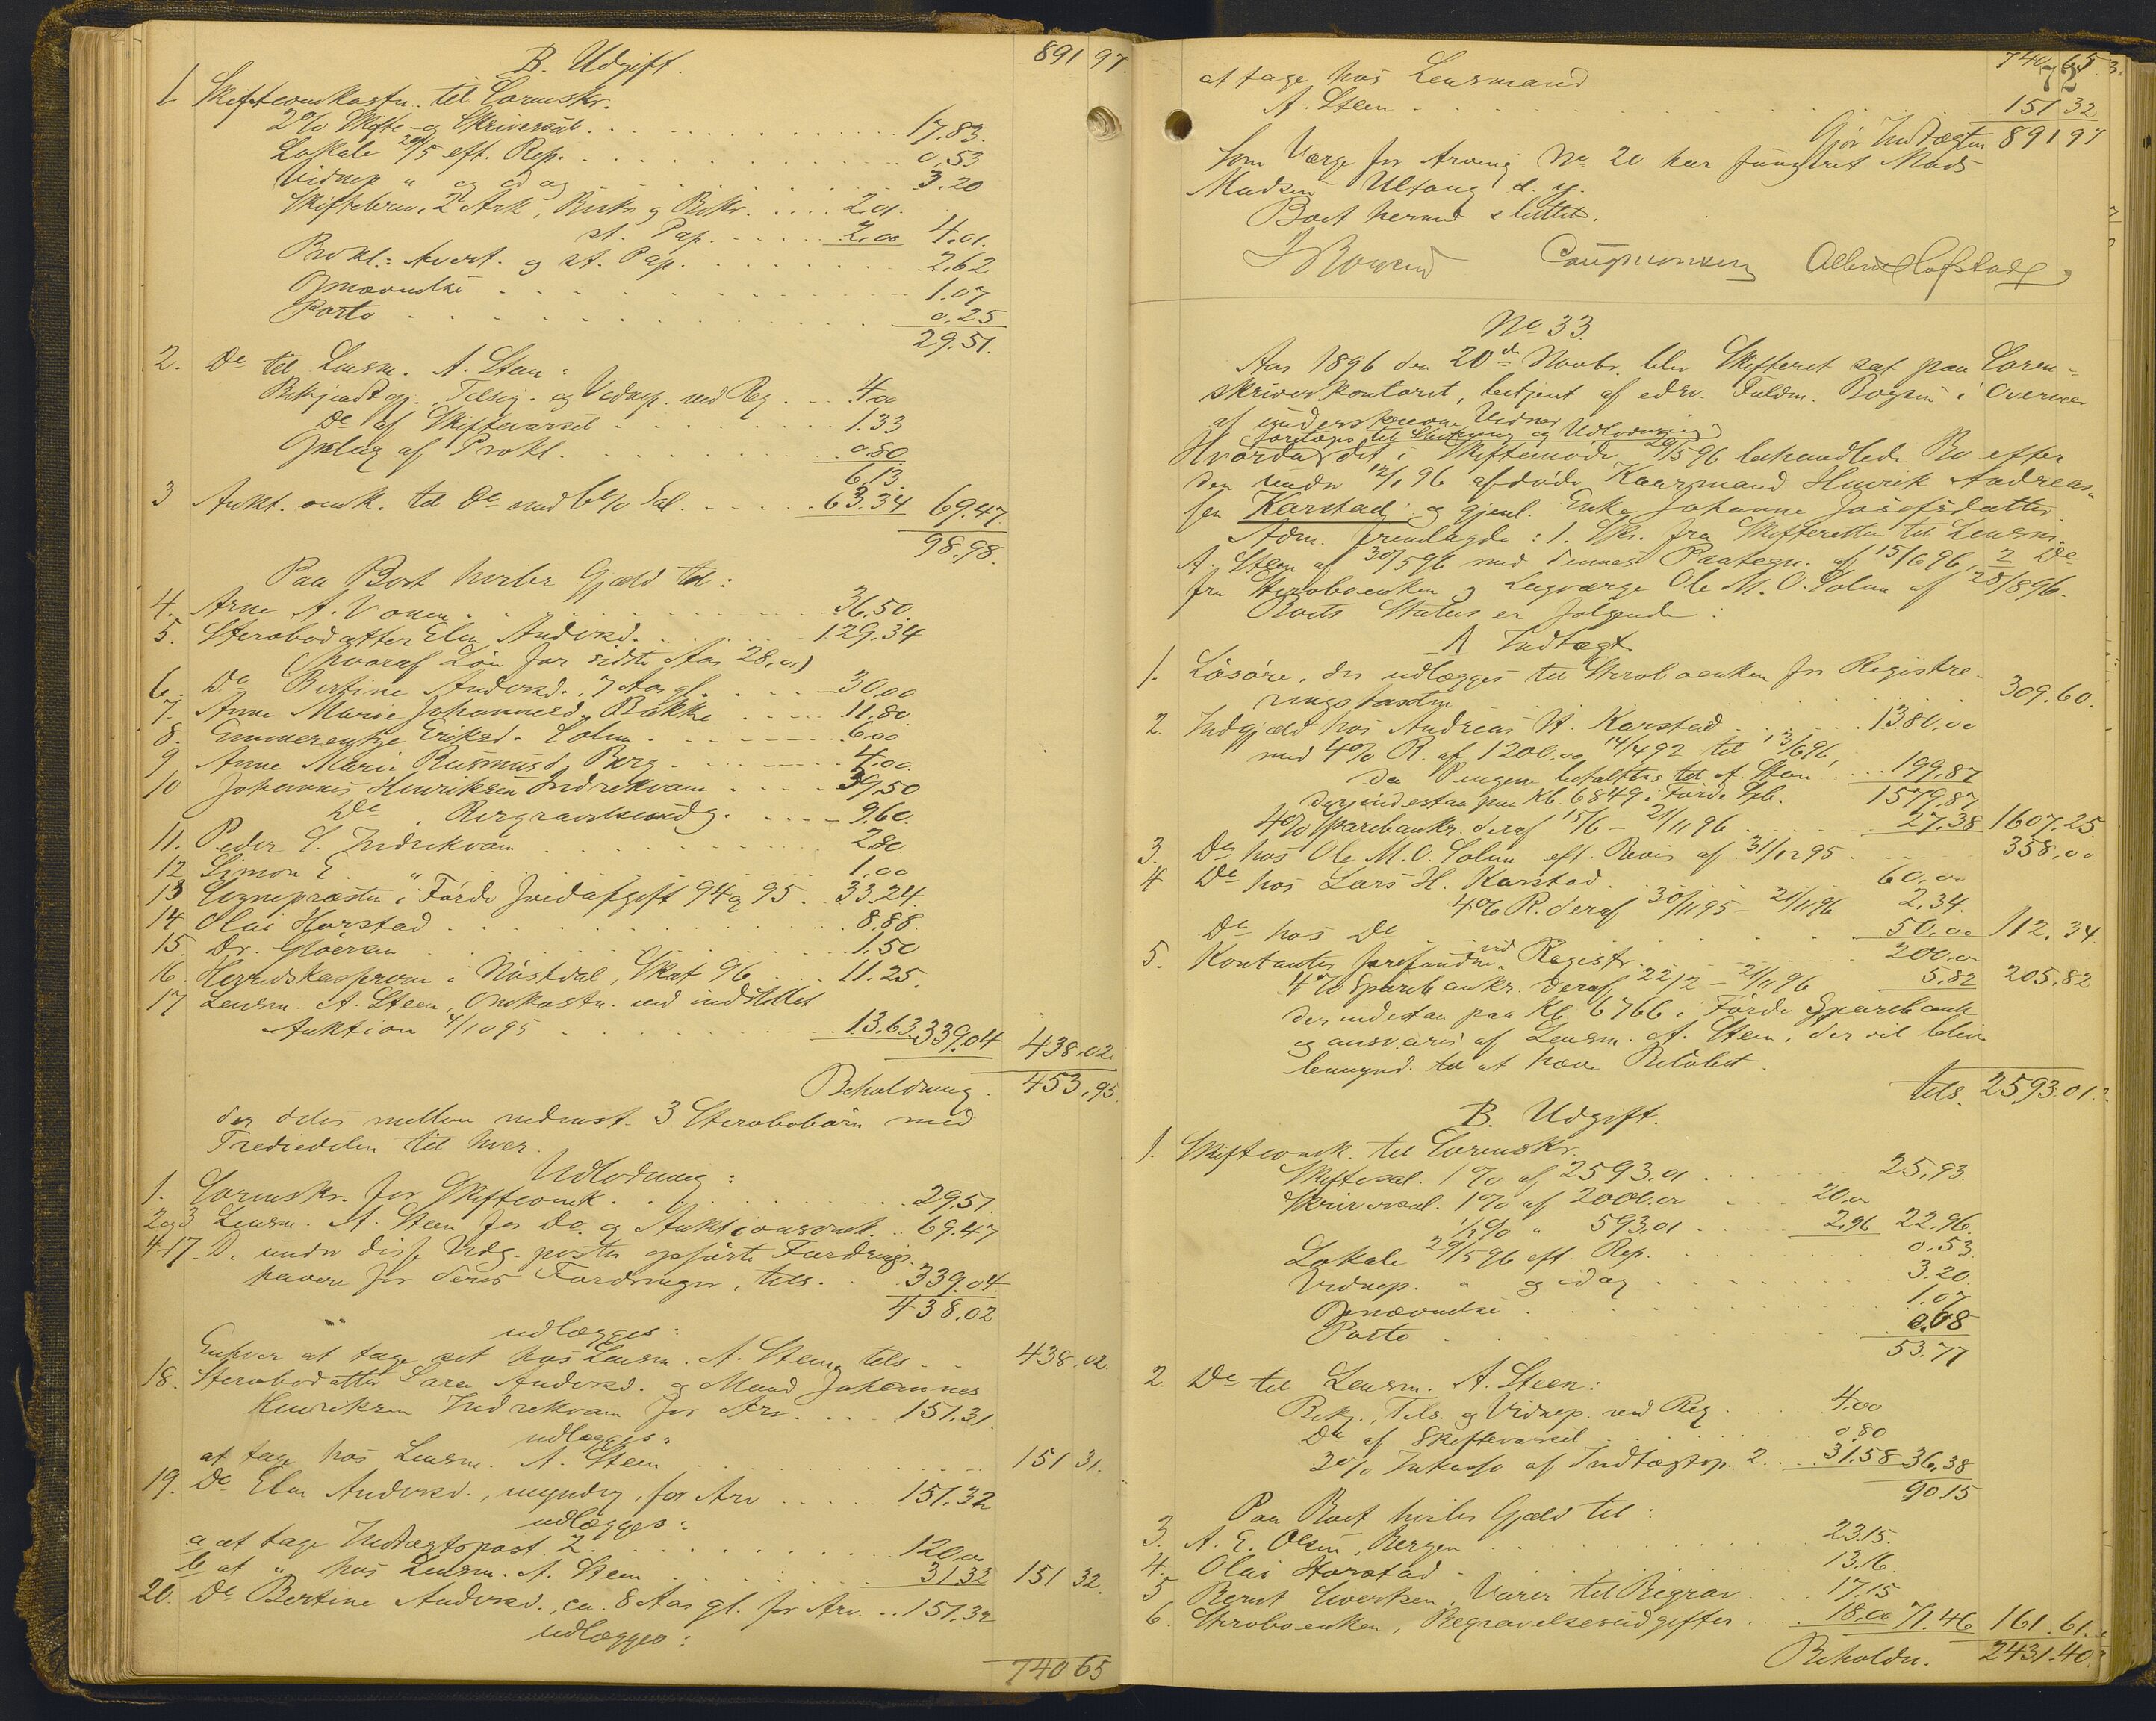 891 97.
B. Udgift.
1 Skifteomkostn. til Sorenskr.
2% Skifte- og Skriversal. 17.83.
Lokale 29/5 eft. Rep. 0.53
Vidnep " og idag 3.20
Skiftebrev. 2 Ark, 2.01.
st. Pap. 2.00 4.01.
Prokl.: Avert. og st. Pap. 2.62
Opnævnelse 1.07
Porto 0.25
29.51.
2. Do til Lensm. A. Steen:
Bekjendtgj. Tilsig. og Vidnep. ved Reg. 4.00
Do af Skiftevarsel 1.33
Opslag af Prokl. 0.80
6.13.
3 Aukt. omk. til Do med 6% Sal. 63.34 69.47.
98.98.
Paa Boet hviler Gjæld til:
4. Arne A. Vonen 36.50.
5. Sterbodatter Elen Andersd. 129.34
(hvoraf Løn for sidste Aar 28,00)
6. Do Bertine Andersd. 7 Aar gl. 30.00
7. Anne Marie Johannesd. Bakke 11.80.
8. Emmerentze Eriksd. Solem 6.00
9 Anne Marie Rasmusd. Berg 4.00
10 Johannes Henriksen Indrekvam 39.50
Do Begravelsesudg. 9.60.
11. Peder S. Indrekvam 2.80.
12 Simon E. " 1.00
13 Sognepræsten i Førde Jordafgift 94 og 95. 33.24.
14 Olai Horstad 8.88.
15. Dr. 1.50
16. Herredskasserern i Nöstdal, Skat 96 11.25.
17 Lensm. A. Steen, Omkostn. ved indstillet
Auktion 4/10 95 13.63 339.04 438.02.
Beholdning. 453.95.
der deles mellem nedenst. 3 Sterbobörn med
Trediedelen til hver.
Udlodning:
1. Sorenskr. for Skifteomk. 29.51.
2og3 Lensm. A. Steen for do og Auktionsomk. 69.47
4-17. De under disse Udg. poster opførte Fordrings-
havere for deres Fordringer, tils. 339.04.
438.02
udlægges:
Enhver at tage sit hos Lensm. A. Steen, tils. 438.02.
18. Sterbodatter Sara Andersd. og Mand Johannes
Henriksen Indrekvam for Arv. 151.31.
udlægges:
at tage hos Lensm. A. Steen 151 31.
19. Do Elen Andersd., myndig, for Arv 151.32
udlægges:
a at tage Indtægtspost 2. 120.00
b at " hos Lensm. A. Steen 31.32 151 32.
20. Do Bertine Andersd., ca. 8 Aar gl. for Arv. 151.32
udlægges:
740 65
740 65
72
at tage hos Lensmand
A. Steen 151 32
Gjör Indtægten 891 97
Som Værge for Arving No 20 har fungeret Mads
Madsen Ultang d. y.
Boet hermed sluttet.
No 33.
Aar 1896 den 20de Novbr. blev Skifteret sat paa Soren-
skriverkontoret, betjent af edsv. Fuldm. Boysen i Overvær
af underskrevne Vidner
foretages til Slutning og Udlodning
Hvorda det i Skiftemøde 29/5 96 behandlede Bo efter
den under 12/1 96 afdøde Kaarmand Henrik Andreas-
sen Karstad og gjenl. Enke Johanne Josefsdatter
Adm. fremlagde: 1. Skr. fra Skifteretten til Lensm.
A. Steen af 30/5 96 med dennes Paategn. af 15/6 96, 2 Do
fra Sterboenken og Lagværge Ole M. O. Solem af 28/8 96.
Boets Status er følgende:
A Indtægt.
1. Lösöre, der udlægges til Sterboenken for Registre-
ringstaxten 309.60.
2. Indgjæld hos Andreas H. Karstad 1380.00
med 4% R. af 1200.00 14/4 92 til 13/6 96,
da Pengene betaltes til A. Steen 199.87
derindestaa paa Kb. 6849 i Førde Spb. 1579.87
4% Sparebankr. deraf 15/6 - 21/11 96 27.38 1607.25.
3. Do hos Ole M. O. Solem eft. Bevis af 31/12 95 358.00
4 Do hos Lars H. Karstad 60.00
4% R. deraf 30/11 95 - 21/11 96 2.34.
Do hos Do 50.00 112.34.
5. Kontanter forefundne ved Registr. 200.00
4% Sparebankr. deraf 22/2 - 21/11 96 5.82 205.82
der indestaa paa Kb. 6766 i Førde Sparebank
og ansvares af Lensm. A. Steen, der vil blive
bemynd. til at hæve Beløbet.
tils. 2593.01.
B. Udgift.
1. Skifteomk. til Sorenskr.
Skiftesal. 1% af 2593.01 25.93.
Skriversal. 1% af 2000.00 20.00
1/2% " 593.01 2.96 22.96.
Lokale 29/5 96 eft. Rep. 0.53.
Vidnep. " og idag 3.20.
Opnævnelse 1.07
Porto 0.08
53.77
2. Do til Lensm. A. Steen:
Bekj., Tils. og Vidnep. ved Reg. 4.00
Do af Skiftevarsel 0.80
2% Inkasso af Indtægtsp. 2. 31.58 36.38
90.15
Paa Boet hviler Gjæld til:
3. A. E. Olsen, Bergen 23.15.
4. Olai Horstad 13.16.
5 Bernt Sivertsen, Varer til Begrav. 17.15
6. Sterboenken, Begravelsesudgifter 18.00 71.46 161.61.
Beholdn. 2431.40